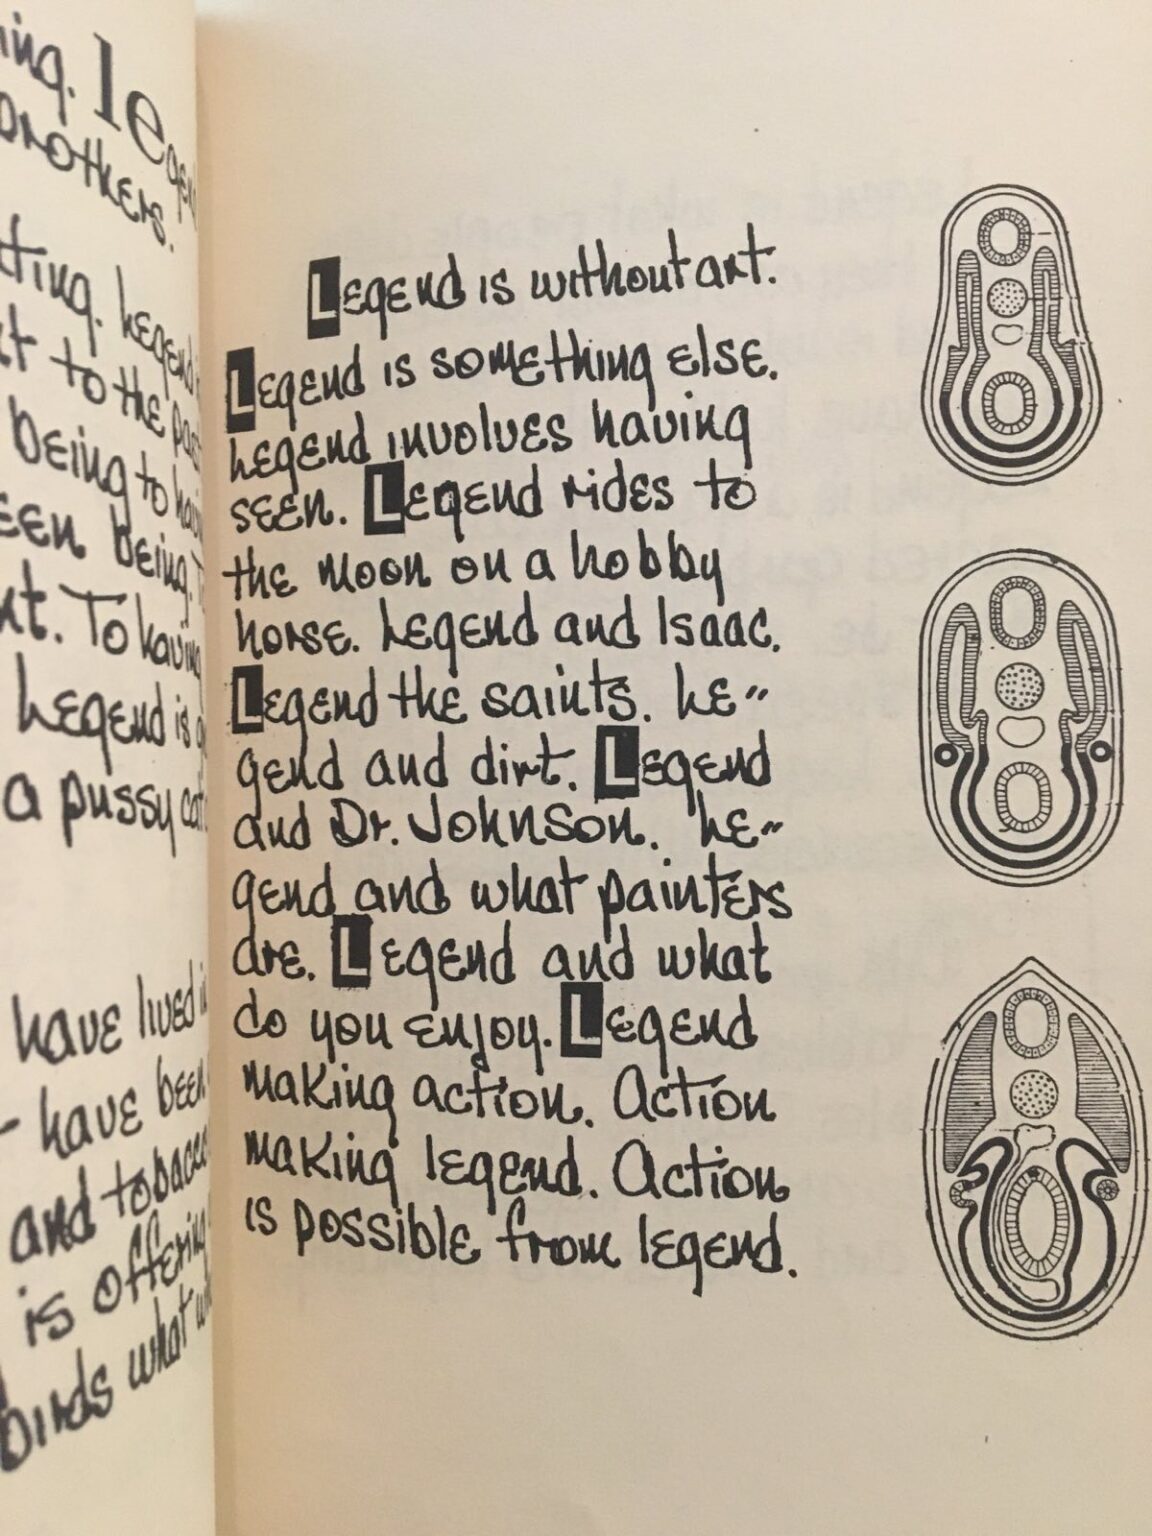 ing. lege
brothers.
ting. Legend
t to the past
being to having
een being. T
nt. To having
Legend is a
a pussy cat
have lived i
- have been
and tobacco
is offering
birds what w
Legend is without art.
Legend is something else.
Legend involves having
seen. Legend rides to
the moon on a hobby
horse. Legend and Isaac.
Legend the saints. Le-
gend and dirt. Legend
and Dr. Johnson. Le-
gend and what painters
are. Legend and what
do you enjoy. Legend
making action. Action
making legend. Action
is possible from legend.